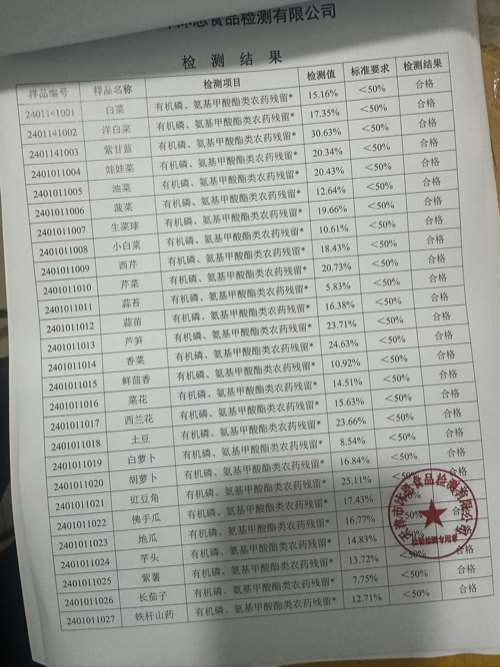 食品检测有限公司
检测结果
样品编号 样品名称 检测项目 检测值 标准要求 检测结果
2401141001 白菜 有机磷、氨基甲酸酯类农药残留* 15.16% ＜50% 合格
2401141002 洋白菜 有机磷、氨基甲酸酯类农药残留* 17.35% ＜50% 合格
2401141003 紫甘蓝 有机磷、氨基甲酸酯类农药残留* 30.63% ＜50% 合格
2401011004 娃娃菜 有机磷、氨基甲酸酯类农药残留* 20.34% ＜50% 合格
2401011005 油菜 有机磷、氨基甲酸酯类农药残留* 20.43% ＜50% 合格
2401011006 菠菜 有机磷、氨基甲酸酯类农药残留* 12.64% ＜50% 合格
2401011007 生菜球 有机磷、氨基甲酸酯类农药残留* 19.66% ＜50% 合格
2401011008 小白菜 有机磷、氨基甲酸酯类农药残留* 10.61% ＜50% 合格
2401011009 西芹 有机磷、氨基甲酸酯类农药残留* 18.43% ＜50% 合格
2401011010 芹菜 有机磷、氨基甲酸酯类农药残留* 20.73% ＜50% 合格
2401011011 蒜苔 有机磷、氨基甲酸酯类农药残留* 5.83% ＜50% 合格
2401011012 蒜苗 有机磷、氨基甲酸酯类农药残留* 16.38% ＜50% 合格
2401011013 芦笋 有机磷、氨基甲酸酯类农药残留* 23.71% ＜50% 合格
2401011014 香菜 有机磷、氨基甲酸酯类农药残留* 24.63% ＜50% 合格
2401011015 鲜茴香 有机磷、氨基甲酸酯类农药残留* 10.92% ＜50% 合格
2401011016 菜花 有机磷、氨基甲酸酯类农药残留* 14.51% ＜50% 合格
2401011017 西兰花 有机磷、氨基甲酸酯类农药残留* 15.63% ＜50% 合格
2401011018 土豆 有机磷、氨基甲酸酯类农药残留* 23.66% ＜50% 合格
2401011019 白萝卜 有机磷、氨基甲酸酯类农药残留* 8.54% ＜50% 合格
2401011020 胡萝卜 有机磷、氨基甲酸酯类农药残留* 16.84% ＜50% 合格
2401011021 豇豆角 有机磷、氨基甲酸酯类农药残留* 25.11% ＜50% 合格
2401011022 佛手瓜 有机磷、氨基甲酸酯类农药残留* 17.43% ＜50% 合格
2401011023 地瓜 有机磷、氨基甲酸酯类农药残留* 16.77% ＜50% 合格
2401011024 芋头 有机磷、氨基甲酸酯类农药残留* 14.83% ＜50% 合格
2401011025 紫薯 有机磷、氨基甲酸酯类农药残留* 13.72% ＜50% 合格
2401011026 长茄子 有机磷、氨基甲酸酯类农药残留* 7.75% ＜50% 合格
2401011027 铁杆山药 有机磷、氨基甲酸酯类农药残留* 12.71% ＜50% 合格
食品检测有限公司
检验检测专用章